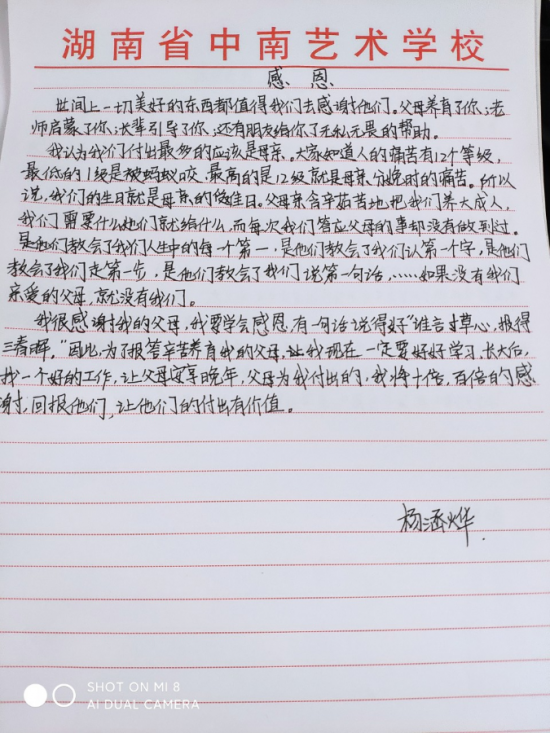 湖南省中南艺术学校
感恩
世间上一切美好的东西都值得我们去感谢他们。父母养育了你；老
师启蒙了你；长辈引导了你；还有朋友给你了无私无畏的帮助。
我认为我们付出最多的应该是母亲。大家知道人的痛苦有12个等级，
最低的1级是被蚂蚁咬，最高的是12级就是母亲分娩时的痛苦。所以
说，我们的生日就是母亲的难日。父母亲含辛茹苦地把我们养大成人，
我们需要什么她们就给什么，而每次我们答应父母的事却没有做到过。
是他们教会了我们人生中的每一个第一，是他们教会了我们认第一个字，是他们
教会了我们走第一步，是他们教会了我们说第一句话，……如果没有我们
亲爱的父母，就没有我们。
我很感谢我的父母，我要学会感恩，有一句话说得好"谁言寸草心，报得
三春晖。"因此，为了报答辛苦养育我的父母，让我现在一定要好好学习，长大后，
找一个好的工作，让父母安享晚年，父母为我付出的，我将十倍，百倍的感
谢，回报他们，让他们的付出有价值。
杨涵烨.
SHOT ON MI 8
AI DUAL CAMERA